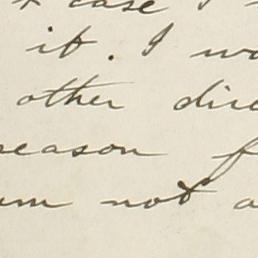 case I
it. I wo
other dire
reason f
um not a